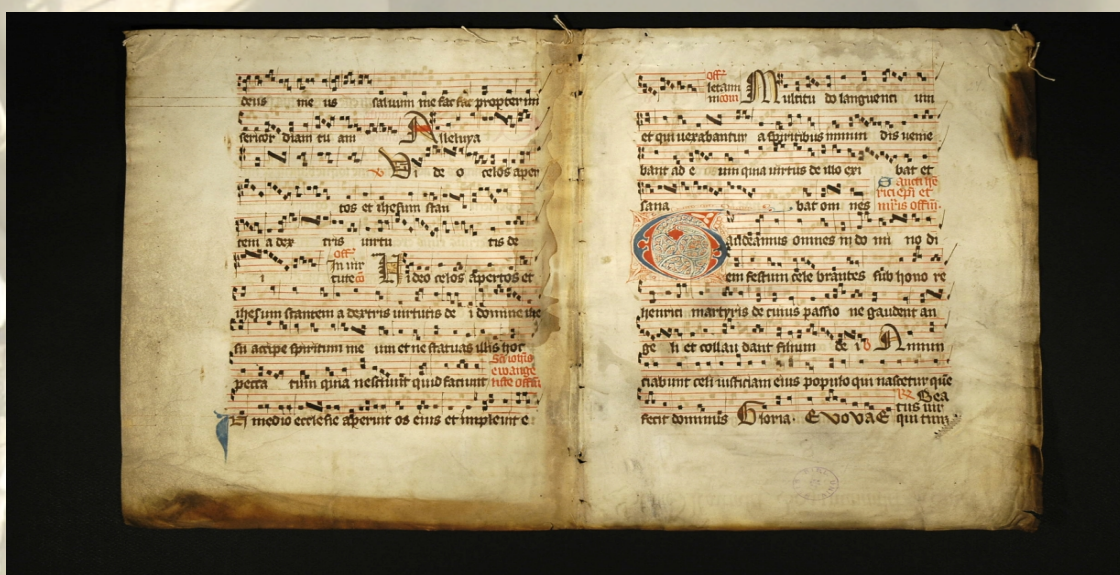 deus me us saluum me fac fac propter mi
sericor diam tu am Alleluya
Vi de o celos aper
tos et ihesum stan
tem a dex tris uirtu tis de
i
off
In uir
tute
Video celos apertos et
ihesum stantem a dextris uirtutis de i domine ihe
su accipe spiritum me um et ne statuas illis hoc
pecca tum quia nesciunt quid faciunt
ewange
liste
In medio ecclesie aperuit os eius et impleuit e
off
letam
ini
com
Multitu do languenti um
et qui uexabantur a spiritibus inmun dis uenie
bant ad e um quia uirtus de illo exi bat et
sana bat om nes
Sancti he
rici epi et
mris offm.
Gaudeamus omnes in do mi no di
em festum cele brantes sub hono re
henrici martyris de cuius passio ne gaudent an
ge li et collau dant filium de i Annun
ciabunt celi iusticiam eius populo qui nascetur que
fecit dominus Gloria. EVOVAE
Bea
tus uir
qui tim